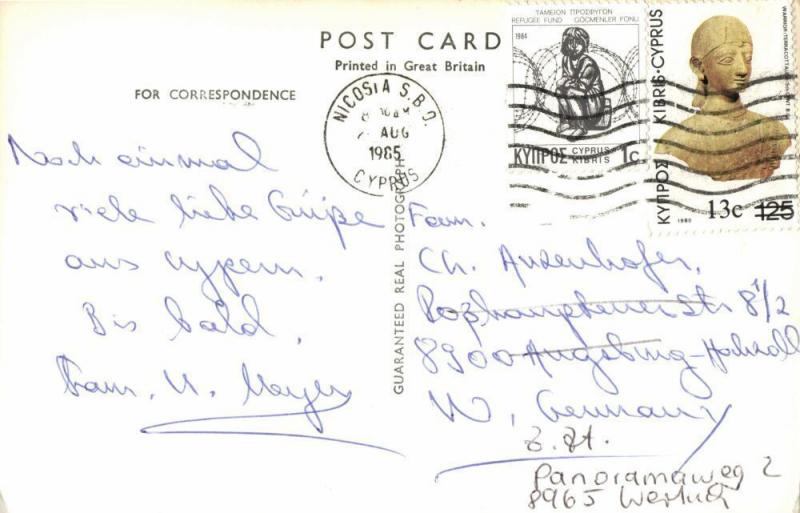 POST CARD
Printed in Great Britain
FOR CORRESPONDENCE
ΤΑΜΕΙΟΝ ΠΡΟΣΦΥΓΩΝ
REFUGEE FUND GÖÇMENLER FONU
1984
ΚΥΠΡΟΣ CYPRUS KIBRIS 1c
ΚΥΠΡΟΣ KIBRIS·CYPRUS
1980
13c 125
NICOSIA S.B.O.
AUG
1985
CYPRUS
GUARANTEED REAL PHOTOGRAPH
Noch einmal
viele liebe Grüße
aus Cypern.
Bis bald,
Fam. U. Mayer
Fam.
Ch. Anzenhofer,
Str 8 1/2
8900 Augsburg-
W. Germany
z. Zt.
Panoramaweg 2
8965